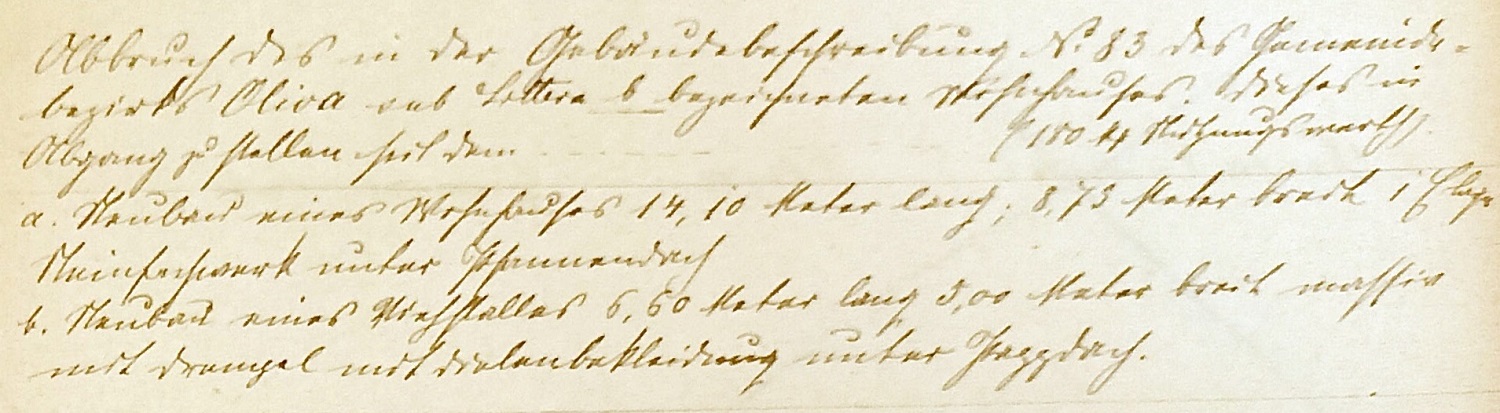 Abbruch des in der Gebäudebeschreibung No 83 des Gemeinde-
bezirks Oliva sub Littera b bezeichneten Wohnhauses. Dieses in
Abgang zu stellen seit dem
(180 M Nutzungswerth).
a. Neubau eines Wohnhauses 14,10 Meter lang; 8,73 Meter breit 1 Etage
Steinfachwerk unter Pfannendach
b. Neubau eines Viehstalles 6,60 Meter lang 5,00 Meter breit massiv
mit Drempel mit Dielenbekleidung unter Pappdach.